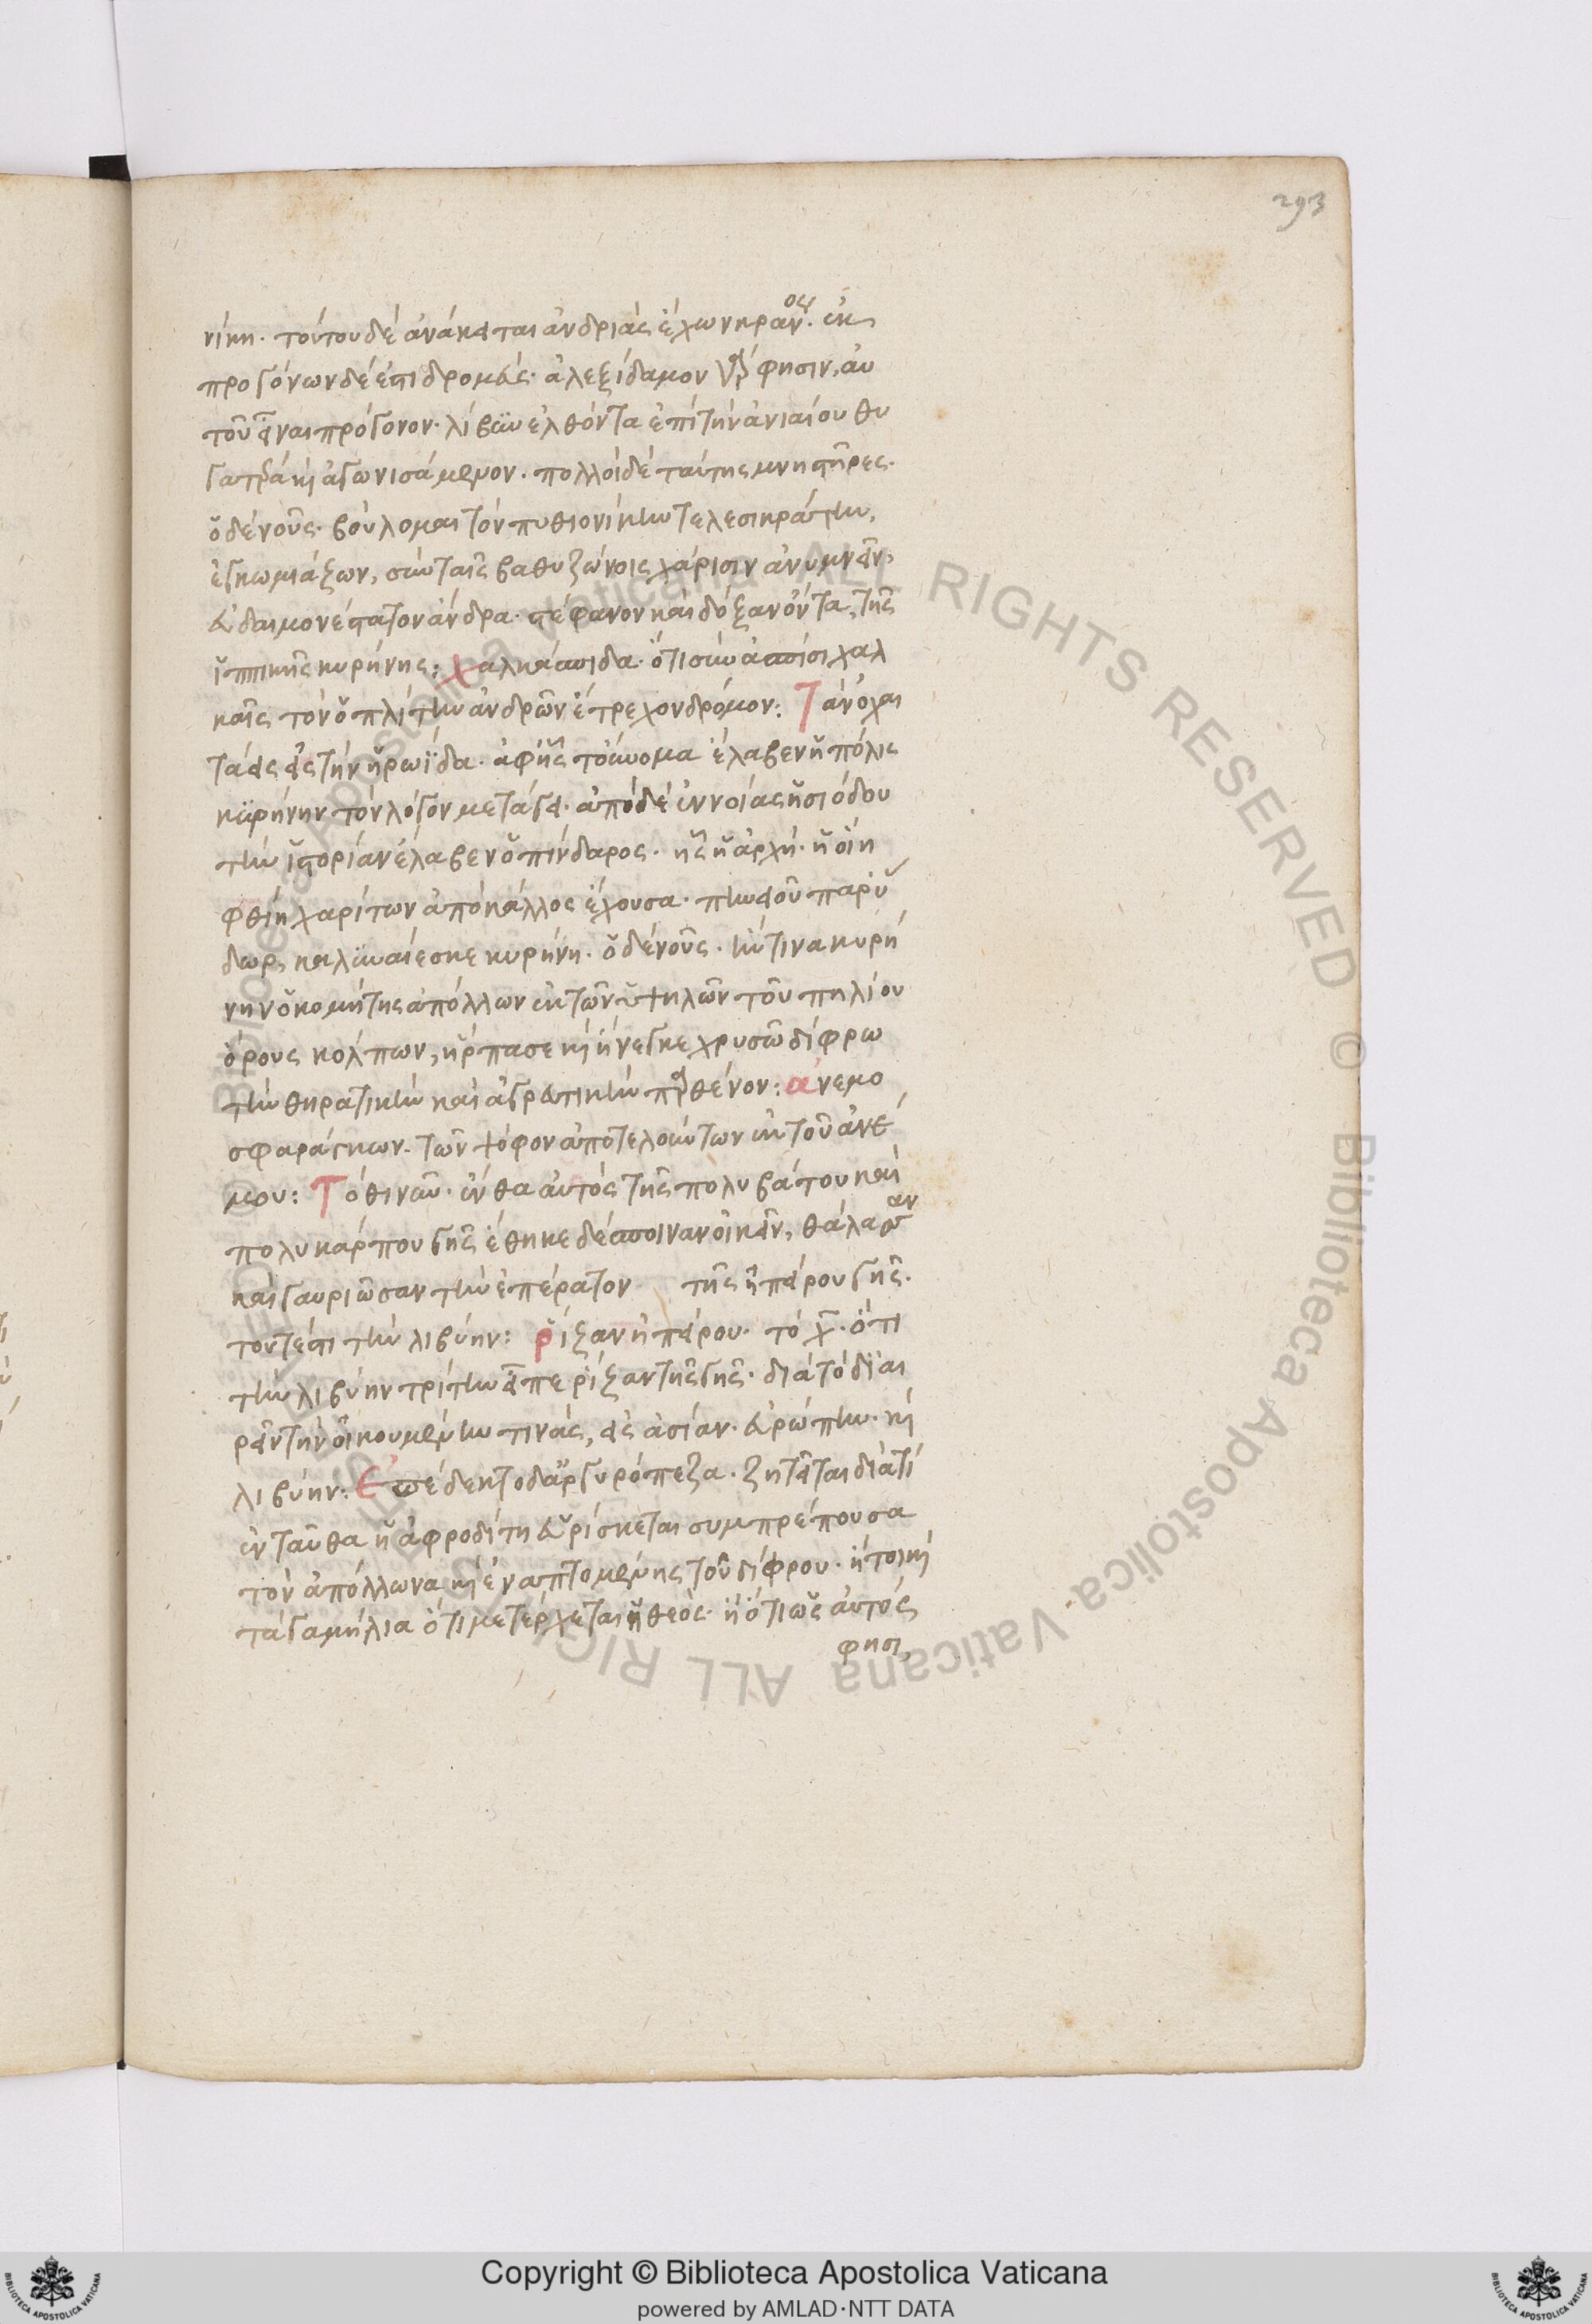 293
νίκη. τούτου δὲ ἀνάκειται ἀνδριὰς ἔχων κράνος. ἐκ
προγόνων δέ ἐστι δρομεύς. ἀλεξίδαμον γάρ φησιν, αὐ
τοῦ εἶναι πρόγονον. λίβυν ἐλθόντα ἐπὶ τὴν ἀνταίου θυ
γατέρα κὶ ἀγωνισάμενον. πολλοὶ δὲ ταύτης μνηστῆρες.
ὁ δὲ νοῦς. βούλομαι τὸν πυθιονίκην τελεσικράτην,
ἐγκωμιάζων, σὺν ταῖς βαθυζώνοις χάρισιν ἀνυμνεῖν,
εὐδαιμονέστατον ἄνδρα. στέφανον καὶ δόξαν ὄντα, τῆς
ἱππικῆς κυρήνης: χαλκάσπιδα. ὅτι σὺν ἀσπίσι χαλ
καῖς τὸν ὁπλίτην ἀνδρῶν ἔτρεχον δρόμον: Τὰν ὁ χαι
τάεις εἰς τὴν ἡρωίδα. ἀφ' ἧς τὸ ὄνομα ἔλαβεν ἡ πόλις
κυρήνην τὸν λόγον μετάγει. ἀπὸ δὲ ἐννοίας ἡσιόδου
τὴν ἱστορίαν ἔλαβεν ὁ πίνδαρος. ἧς ἡ ἀρχή. ἢ οἵη
φθίη χαρίτων ἀπὸ κάλλος ἔχουσα. πηνειοῦ παρ' ὕ
δωρ, καλὴ ναίεσκε κυρήνη. ὁ δὲ νοῦς. ἥν τινα κυρή
νην ὁ κομήτης ἀπόλλων ἐκ τῶν ὑψηλῶν τοῦ πηλίου
ὄρους κόλπων, ἥρπασε κὶ ἤνεγκε χρυσῶ δίφρω
τὴν θηρατικὴν καὶ ἀγρευτικὴν παρθένον: ἀνεμο
σφαράγκων. τῶν ψόφον ἀποτελούντων ἐκ τοῦ ἀνέ
μου: Τόθι νιν. ἔνθα αὐτὸς τῆς πολυβάτου καὶ
πολυκάρπου γῆς ἔθηκε δέσποιναν οἰκεῖν, θάλασσαν
καὶ γαυριῶσαν τὴν ἐπέρατον τῆς ἠπείρου γῆς.
τουτέστι τὴν λιβύην: ῥίζαν ἠπείρου. τὸ χ. ὅτι
τὴν λιβύην τρίτην εἶπε ῥίζαν τῆς γῆς. διὰ τὸ διαι
ρεῖν τὴν οἰκουμένην τινάς, εἰς ἀσίαν. εὐρώπην. κὶ
λιβύην: ὑπέδεκτο δ' ἀργυρόπεζα. ζητεῖται διὰ τί
ἐνταῦθα ἡ ἀφροδίτη εὑρίσκεται συμπρέπουσα
τὸν ἀπόλλωνα κὶ ἐναπτομένης τοῦ δίφρου. ἤτοι κὶ
τὰ γαμήλια ὅτι μετέρχεται ἡ θεός. ἢ ὅτι ὡς αὐτός
φησι,